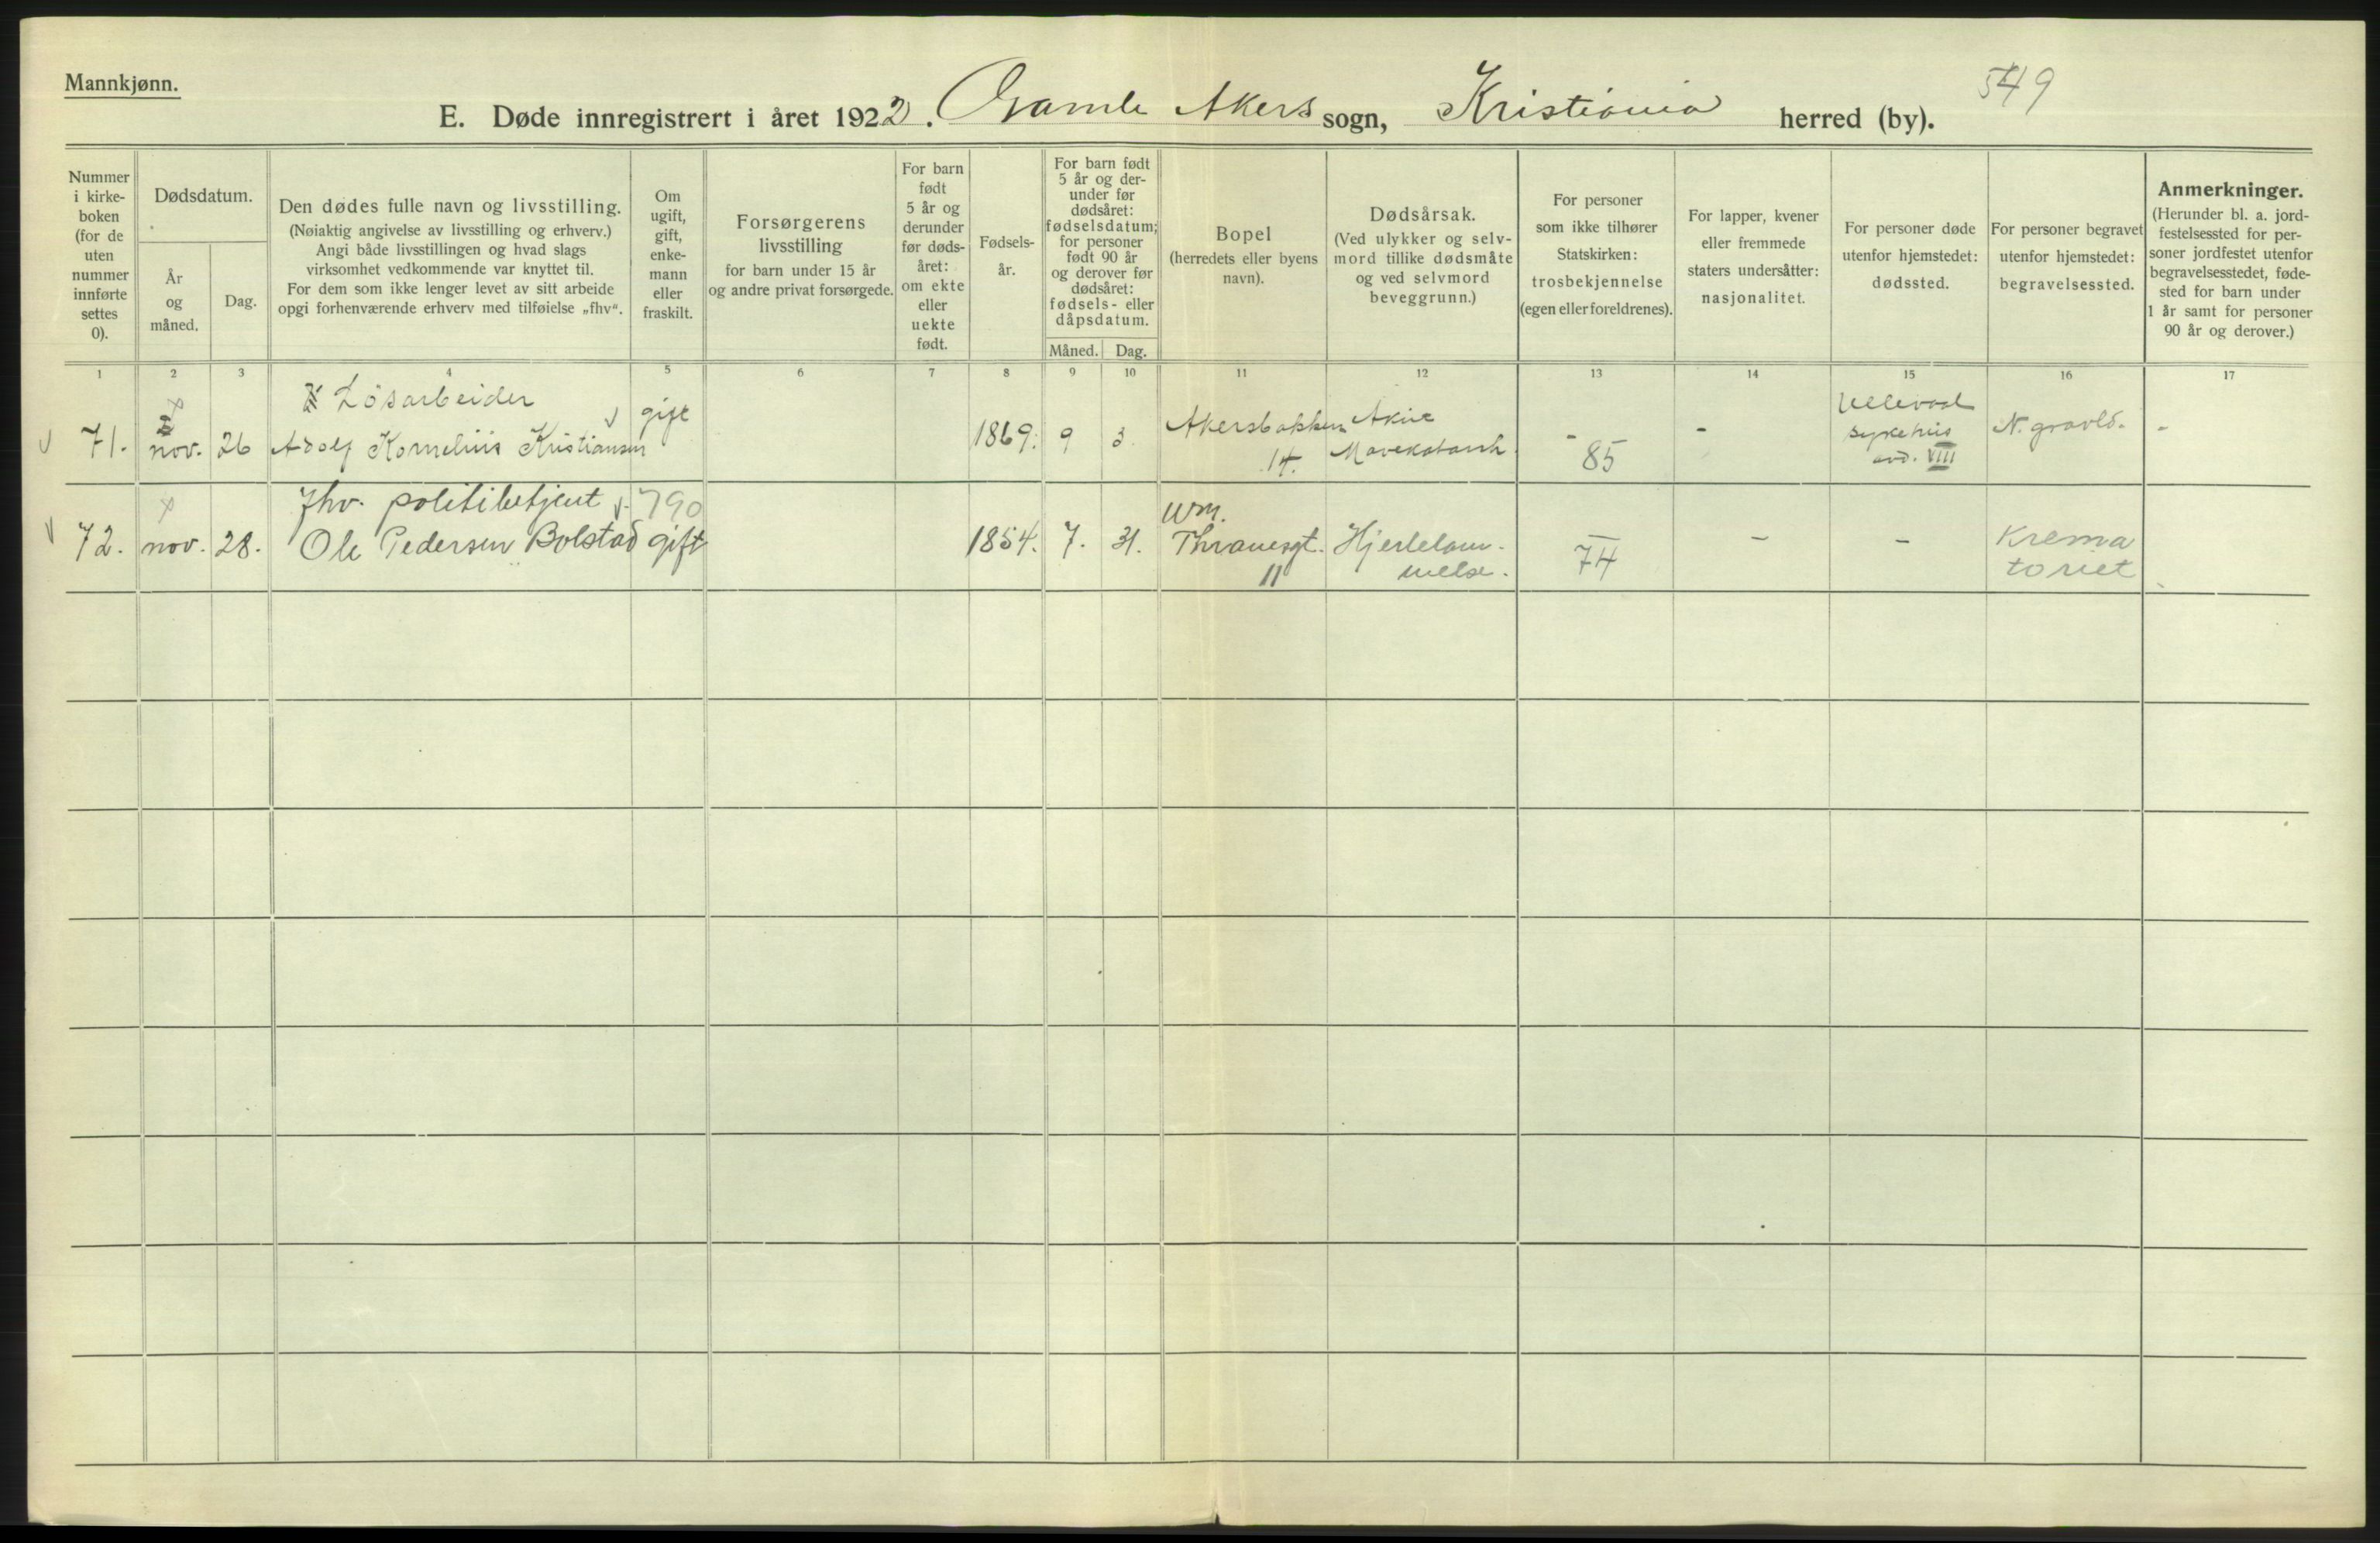 Mannkjønn.
549
E. Døde innregistrert i året 1922. Gamle Akers sogn, Kristiania herred (by).
Nummer
i kirke-
boken
(for de
uten
nummer
innførte
settes
0).
Dødsdatum.
År
og
måned.
Dag.
Den dødes fulle navn og livsstilling.
(Nøiaktig angivelse av livsstilling og erhverv.)
Angi både livsstillingen og hvad slags
virksomhet vedkommende var knyttet til.
For dem som ikke lenger levet av sitt arbeide
opgi forhenværende erhverv med tilføielse „fhv“.
Om
ugift,
gift,
enke-
mann
eller
fraskilt.
Forsørgerens
livsstilling
for barn under 15 år
og andre privat forsørgede.
For barn
født
5 år og
derunder
før døds-
året:
om ekte
eller
uekte
født.
Fødsels-
år.
For barn født
5 år og der-
under før
dødsåret:
fødselsdatum;
for personer
født 90 år
og derover før
dødsåret:
fødsels- eller
dåpsdatum.
Måned. Dag.
Bopel
(herredets eller byens
navn).
Dødsårsak.
(Ved ulykker og selv-
mord tillike dødsmåte
og ved selvmord
beveggrunn.)
For personer
som ikke tilhører
Statskirken:
trosbekjennelse
(egen eller foreldrenes).
For lapper, kvener
eller fremmede
staters undersåtter:
nasjonalitet.
For personer døde
utenfor hjemstedet:
dødssted.
For personer begravet
utenfor hjemstedet:
begravelsessted.
Anmerkninger.
(Herunder bl. a. jord-
festelsessted for per-
soner jordfestet utenfor
begravelsesstedet, føde-
sted for barn under
1 år samt for personer
90 år og derover.)
1 2 3 4 5 6 7 8 9 10 11 12 13 14 15 16 17
Løsarbeider
71. nov. 26 Adolf Kornelius Kristiansen gift 1869. 9 3. Akersbakken
14.
Akut
Mavekatarrh
-
85
-
Ullevaal
sykehus
avd. VIII
N. gravld. -
fhv. politibetjent 790
72. nov. 28. Ole Pedersen Bolstad gift 1854. 7. 31. Wm.
Thranesgt.
11
Hjertelam-
melse.
-
74
- -
Krema
toriet